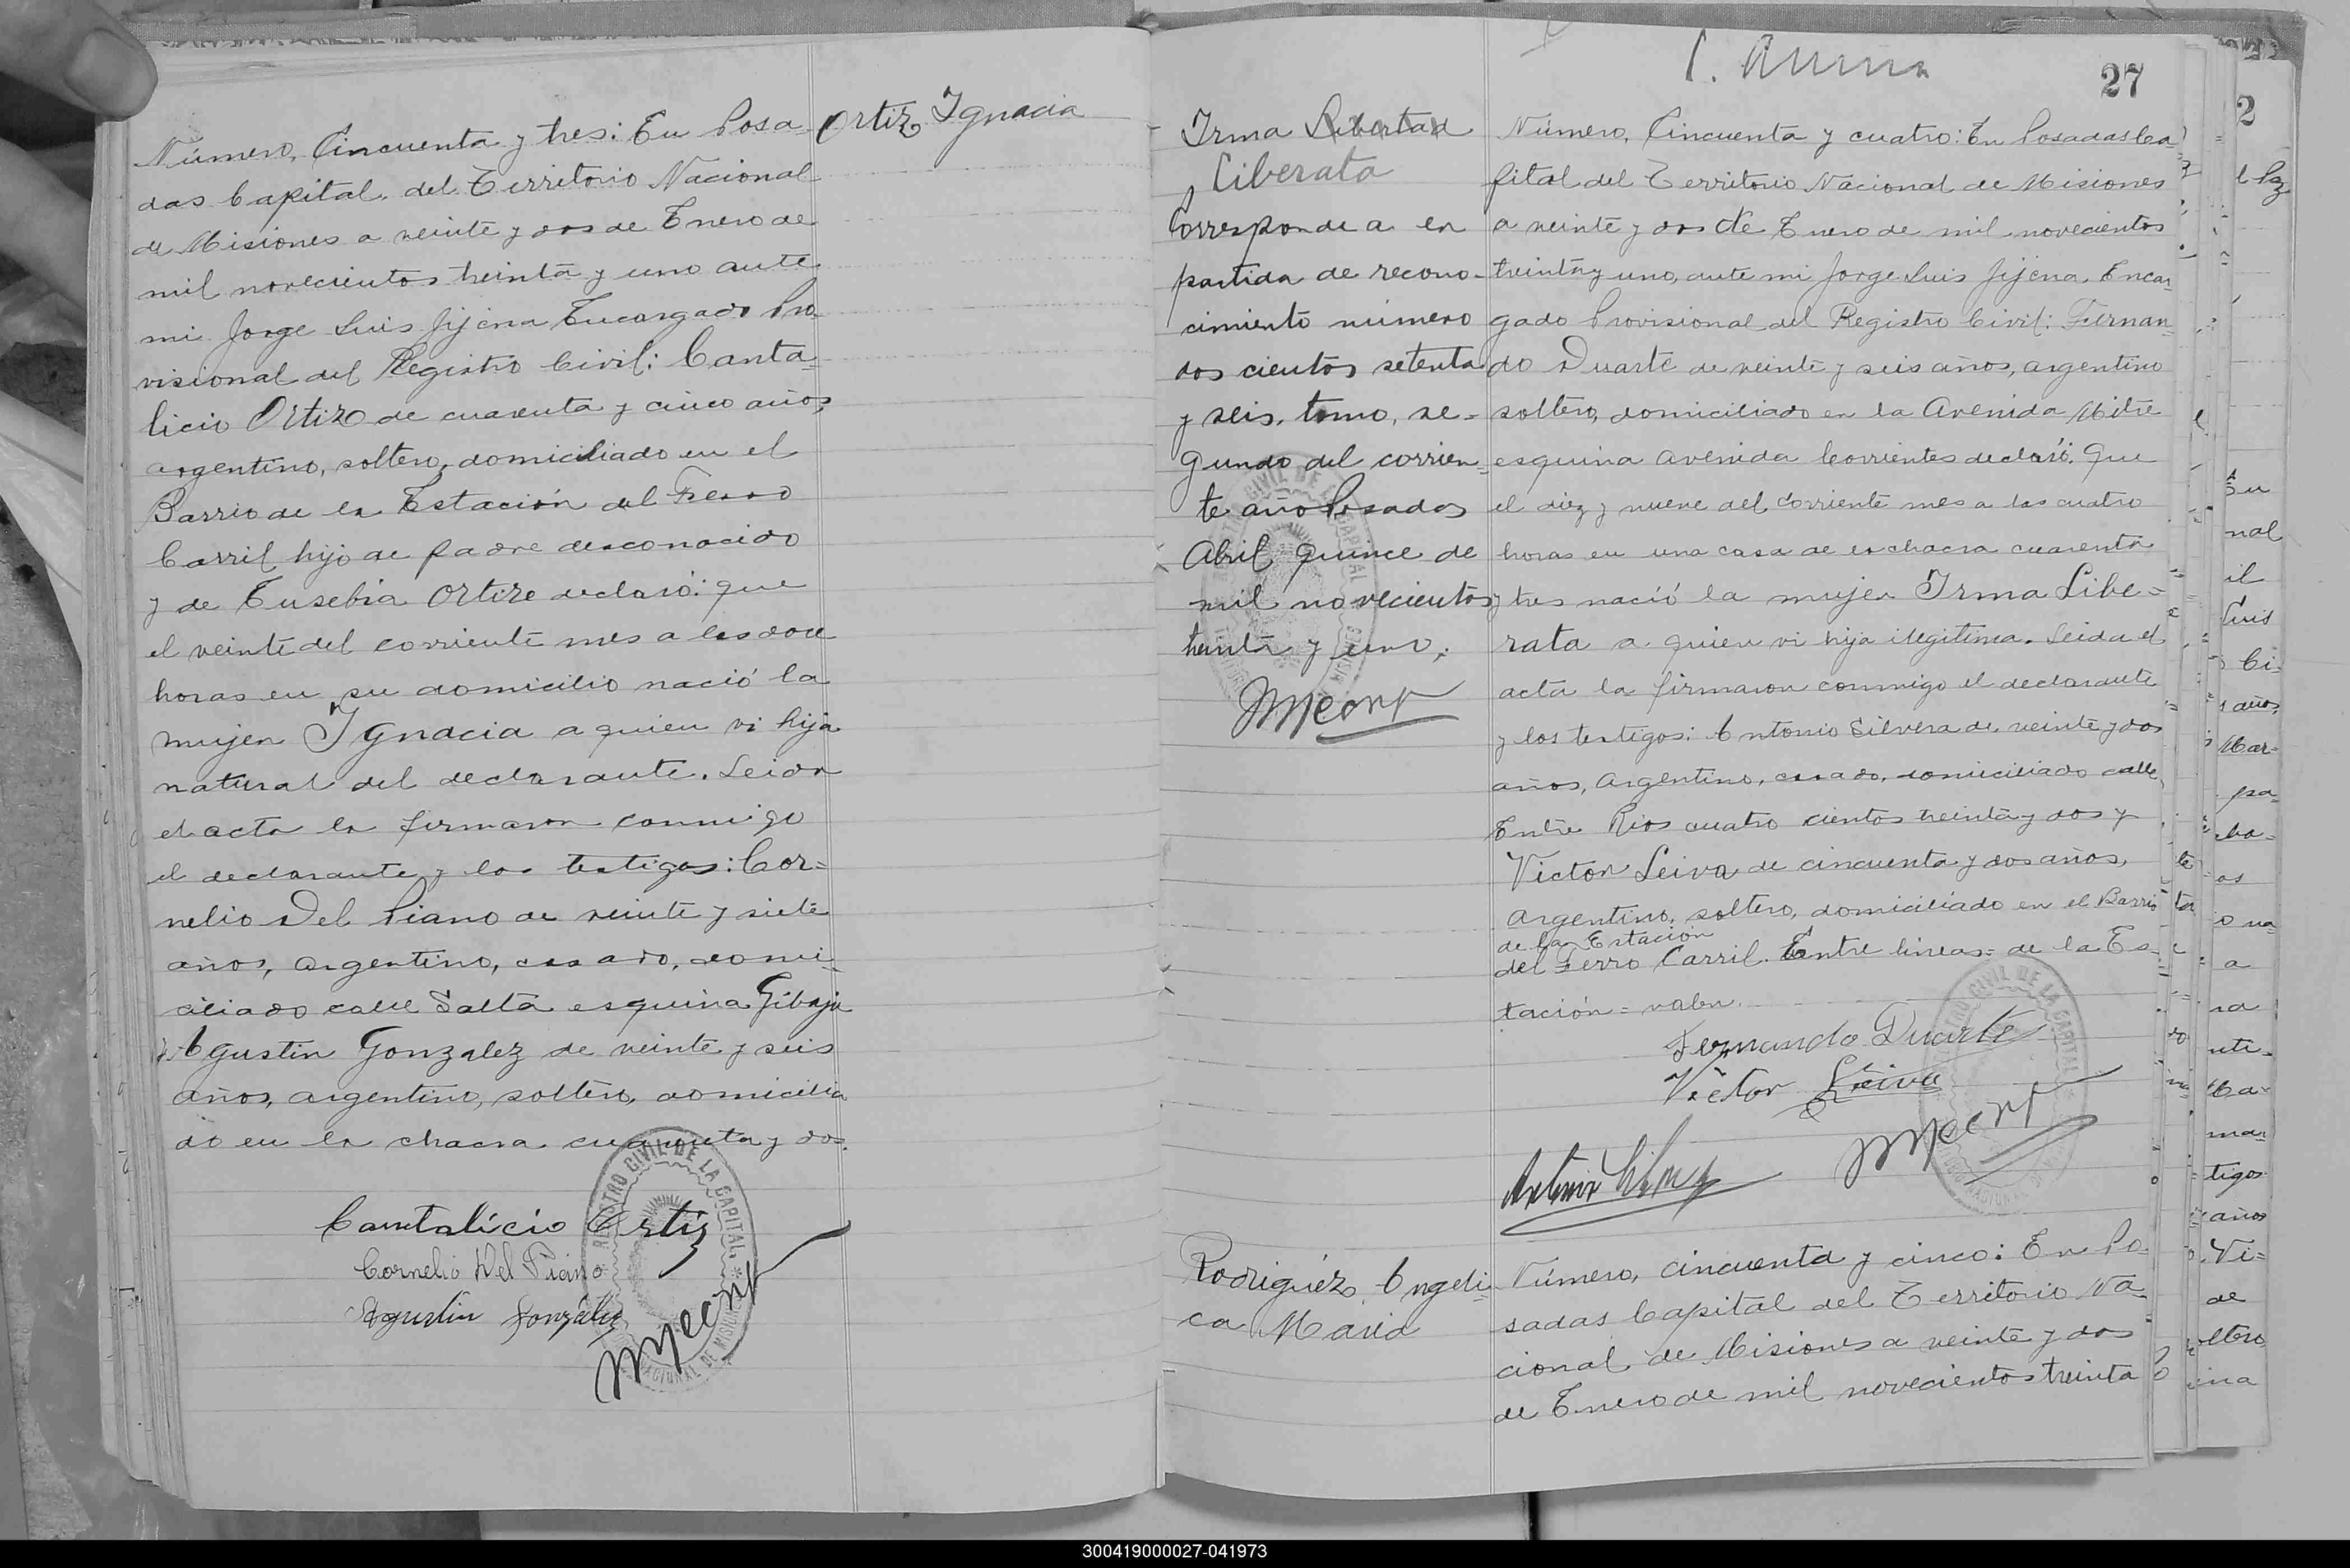 Ortiz, Ignacia
Número, Cincuenta y tres: En Posa
das Capital, del Territorio Nacional
de Misiones a veinte y dos de Enero de
mil novecientos treinta y uno ante
mi Jorge Luis Jijena Encargado Pro-
visional del Registro Civil: Canta-
licio Ortiz de cuarenta y cinco años,
argentino, soltero, domiciliado en el
Barrio de la Estación del Ferro
Carril hijo de padre desconocido
y de Eusebia Ortiz declaró: que
el veinte del corriente mes a las doce
horas en su domicilio nació la
mujer Ignacia a quien vi hija
natural del declarante. Leida
el acta la firmaron conmigo
el declarante y los testigos: Cor=
nelio Del Piano de veinte y siete
años, argentino, casado, domi-
ciliado calle Salta esquina Gibaja
y Agustin Gonzalez de veinte y seis
años, argentino, soltero, domicilia
do en la chacra cuarenta y dos.
Cantalicio Ortiz
Cornelio Del Piano
Agustin González
REGISTRO CIVIL DE LA CAPITAL
NACIONAL DE MISIONES
27
Irma Libertad
Liberata
Corresponde a la
partida de recono-
cimiento número
dos cientos setenta
y seis, tomo, se=
gundo del corrien-
te año Posadas
Abril quince de
mil novecientos
treinta y uno.
Número, Cincuenta y cuatro: En Posadas Ca=
pital del Territorio Nacional de Misiones
a veinte y dos de Enero de mil novecientos
treinta y uno, ante mi Jorge Luis Jijena, Encar=
gado Provisional del Registro Civil: Fernan=
do Duarte de veinte y seis años, argentino
soltero, domiciliado en la Avenida Mitre
esquina avenida Corrientes declaró: Que
el diez y nueve del corriente mes a las cuatro
horas en una casa de la chacra cuarenta
y tres nació la mujer Irma Libe=
rata a quien vi hija ilegitima. Leida el
acta la firmaron conmigo el declarante
y los testigos: Antonio Silvera de veinte y dos
años, Argentino, casado, domiciliado calle
Entre Rios cuatro cientos treinta y dos y
Victor Leiva de cincuenta y dos años,
argentino, soltero, domiciliado en el Barrio
de la Estación
del Ferro Carril. Entre lineas= de la Es-
tación = valen.
Fernando Duarte
Victor Leiva
REGISTRO CIVIL DE LA CAPITAL
Rodriguez, Angeli-
ca Maria
Número, cincuenta y cinco: En Po-
sadas Capital del Territorio Na-
cional de Misiones a veinte y dos
de Enero de mil novecientos treinta
300419000027-041973